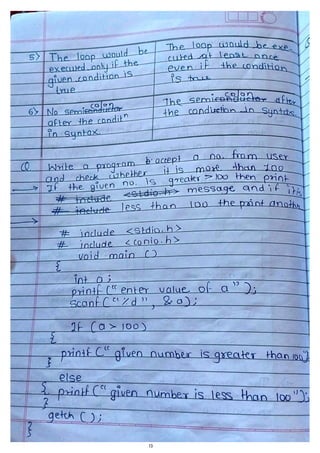 5) The loop would be
executed only if the
given condition is
true
The loop would be exe-
cuted at least once
even if the condition
is true
6) No semicolon
after the conditn
in syntax.
The semicolon after
the conduction in syntax.
Q Write a program to accept a no. from user
and check whether it is more than 100
→ If the given no. is greater > 100 then print
# include <stdio.h> message and if it is
# include less than 100 the print another
→
# include <stdio.h>
# include <conio.h>
void main ()
{
int a;
printf ("enter value of a");
scanf ("%d", &a);
If (a > 100)
{
printf (" given number is greater than 100");
else
{ printf (" given number is less than 100");
}
getch ();
}
13